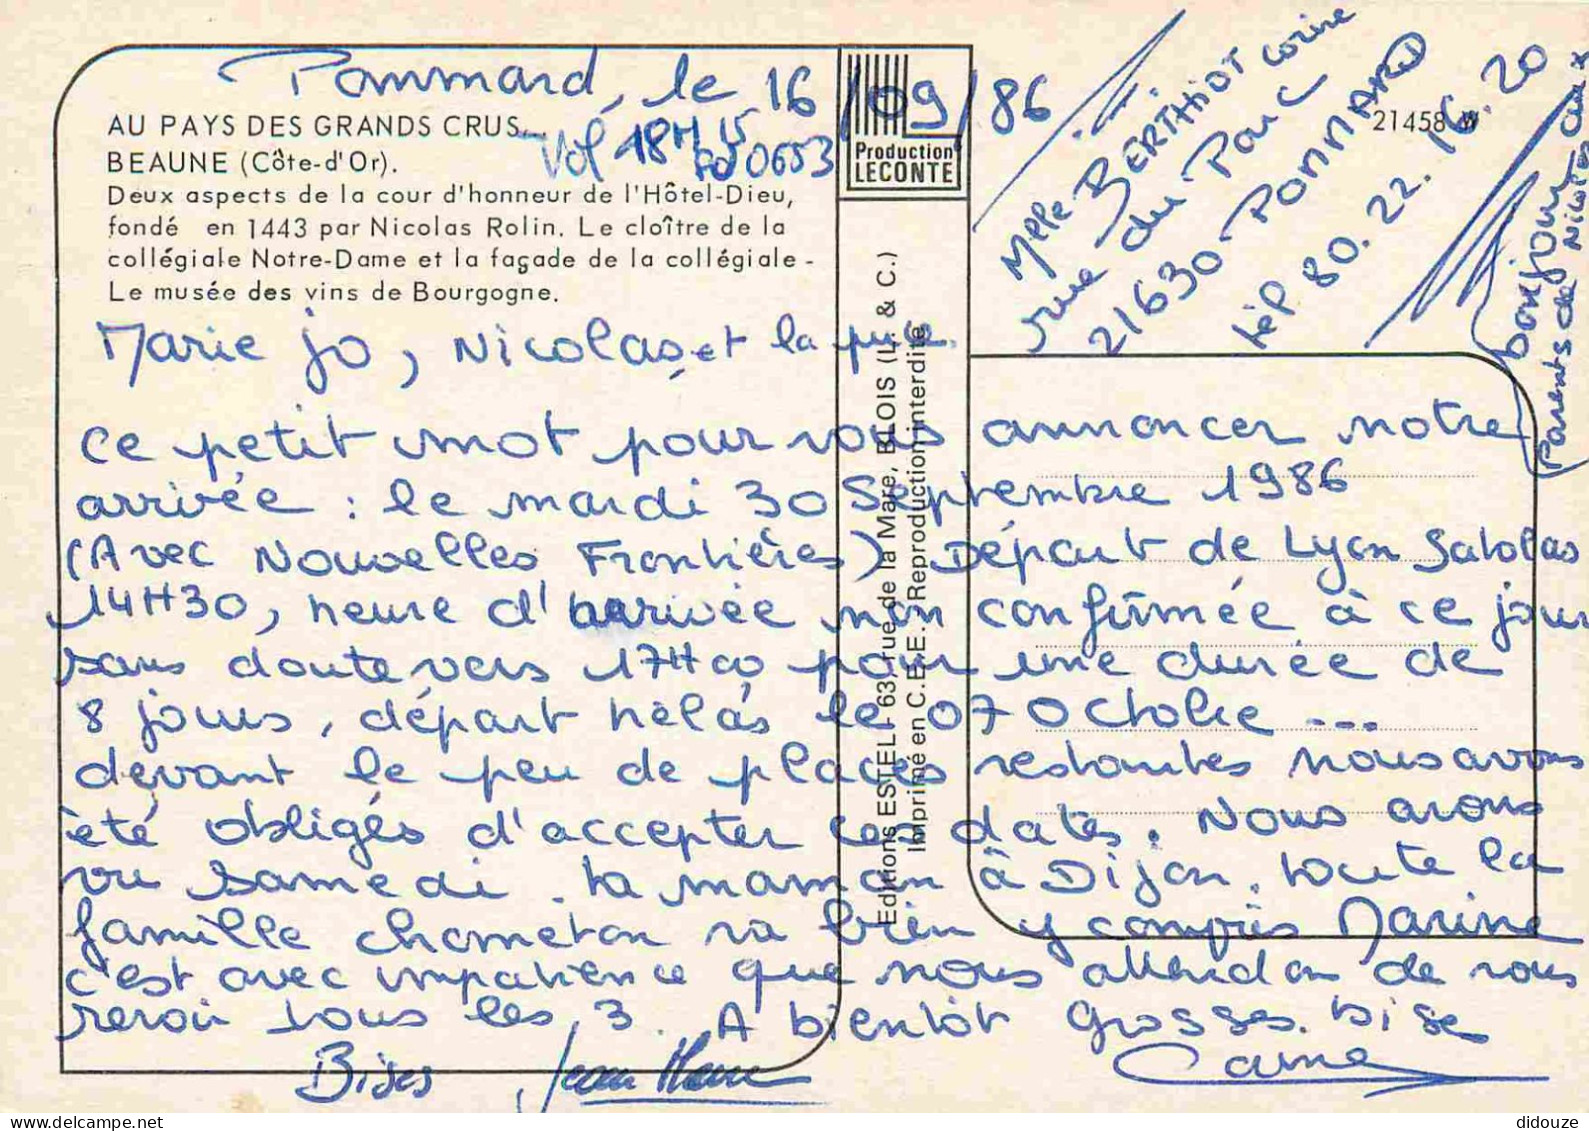 Pommard, le 16/09/86
Vol 18H15
0653
AU PAYS DES GRANDS CRUS...
BEAUNE (Côte-d'Or).
Deux aspects de la cour d'honneur de l'Hôtel-Dieu,
fondé en 1443 par Nicolas Rolin. Le cloître de la
collégiale Notre-Dame et la façade de la collégiale -
Le musée des vins de Bourgogne.
Production
LECONTE
21458 W
Melle BERTHIOT Corine
rue du Parc
21630 POMMARD
tél 80.22.16.20
bonjour aux
Parents de Nicolas
Editions ESTEL - 63, rue de la Mare, BLOIS (L. & C.)
Imprimé en C.E.E. - Reproduction interdite
Marie jo, Nicolas et la puce.
ce petit mot pour vous annoncer notre
arrivée : le mardi 30 Septembre 1986
(Avec Nouvelles Frontières) Départ de Lyon Satolas
14H30, heure d'arrivée non confirmée à ce jour
sans doute vers 17H00 pour une durée de
8 jours, départ hélas le 07 Octobre ---
devant le peu de places restantes nous avons
été obligés d'accepter ces dates. Nous avons
vu samedi ta maman à Dijon, toute la
famille chometon va bien y compris Marine
c'est avec impatience que nous attendons de vous
revoir tous les 3. A bientôt Grosses bise
Bises Jean Marc Corine
didouze